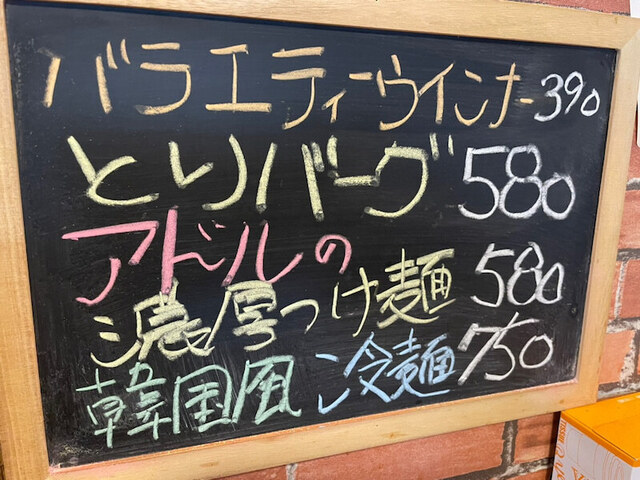 バラエティーウインナー390
とりバーグ 580
アドルの
濃厚つけ麺 580
韓国風冷麺 750